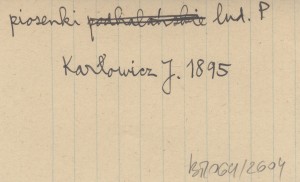 piosenki podhalańskie lud. P
Karłowicz J. 1895